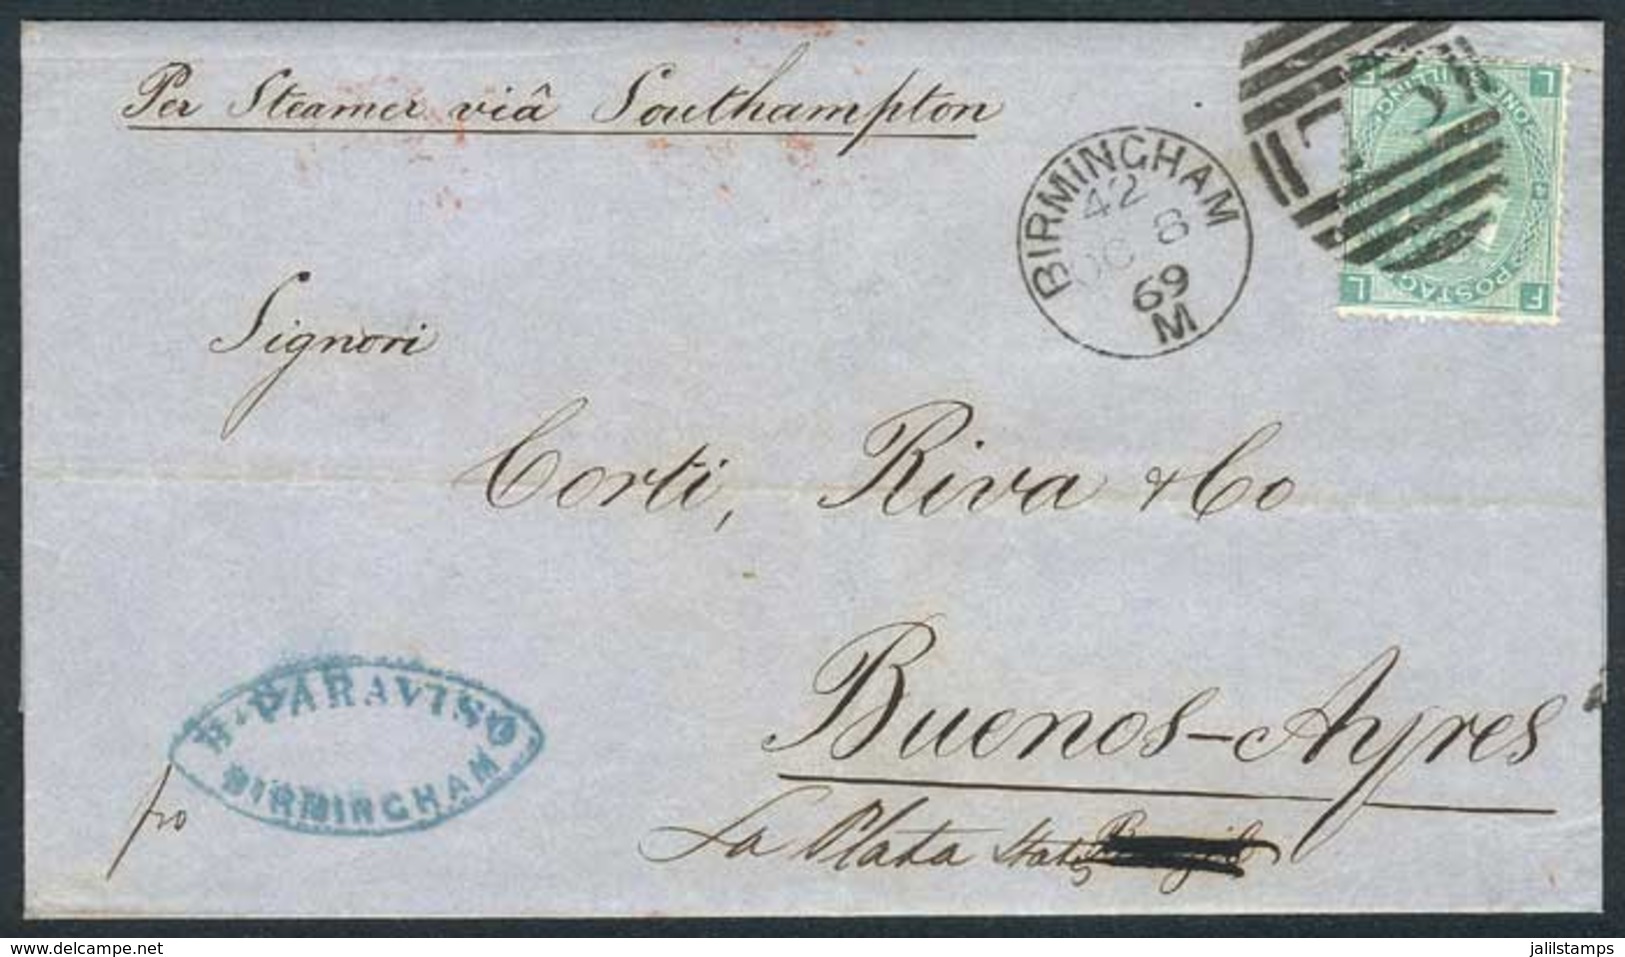 Per Steamer viâ Southampton
BIRMINGHAM
42
OC 8
69
M
ONE
POSTAG
L
L
F
Signori
Corti, Riva & Co
Buenos-Ayres
La Plata States
B. PARAVISO
BIRMINGHAM
pro
www.delcampe.net
jalilstamps